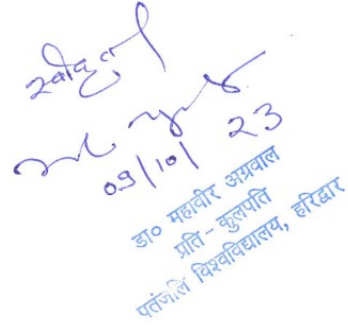 स्वीकृत
09/10/23
डा० महावीर अग्रवाल
प्रति - कुलपति
पतंजलि विश्वविद्यालय, हरिद्वार